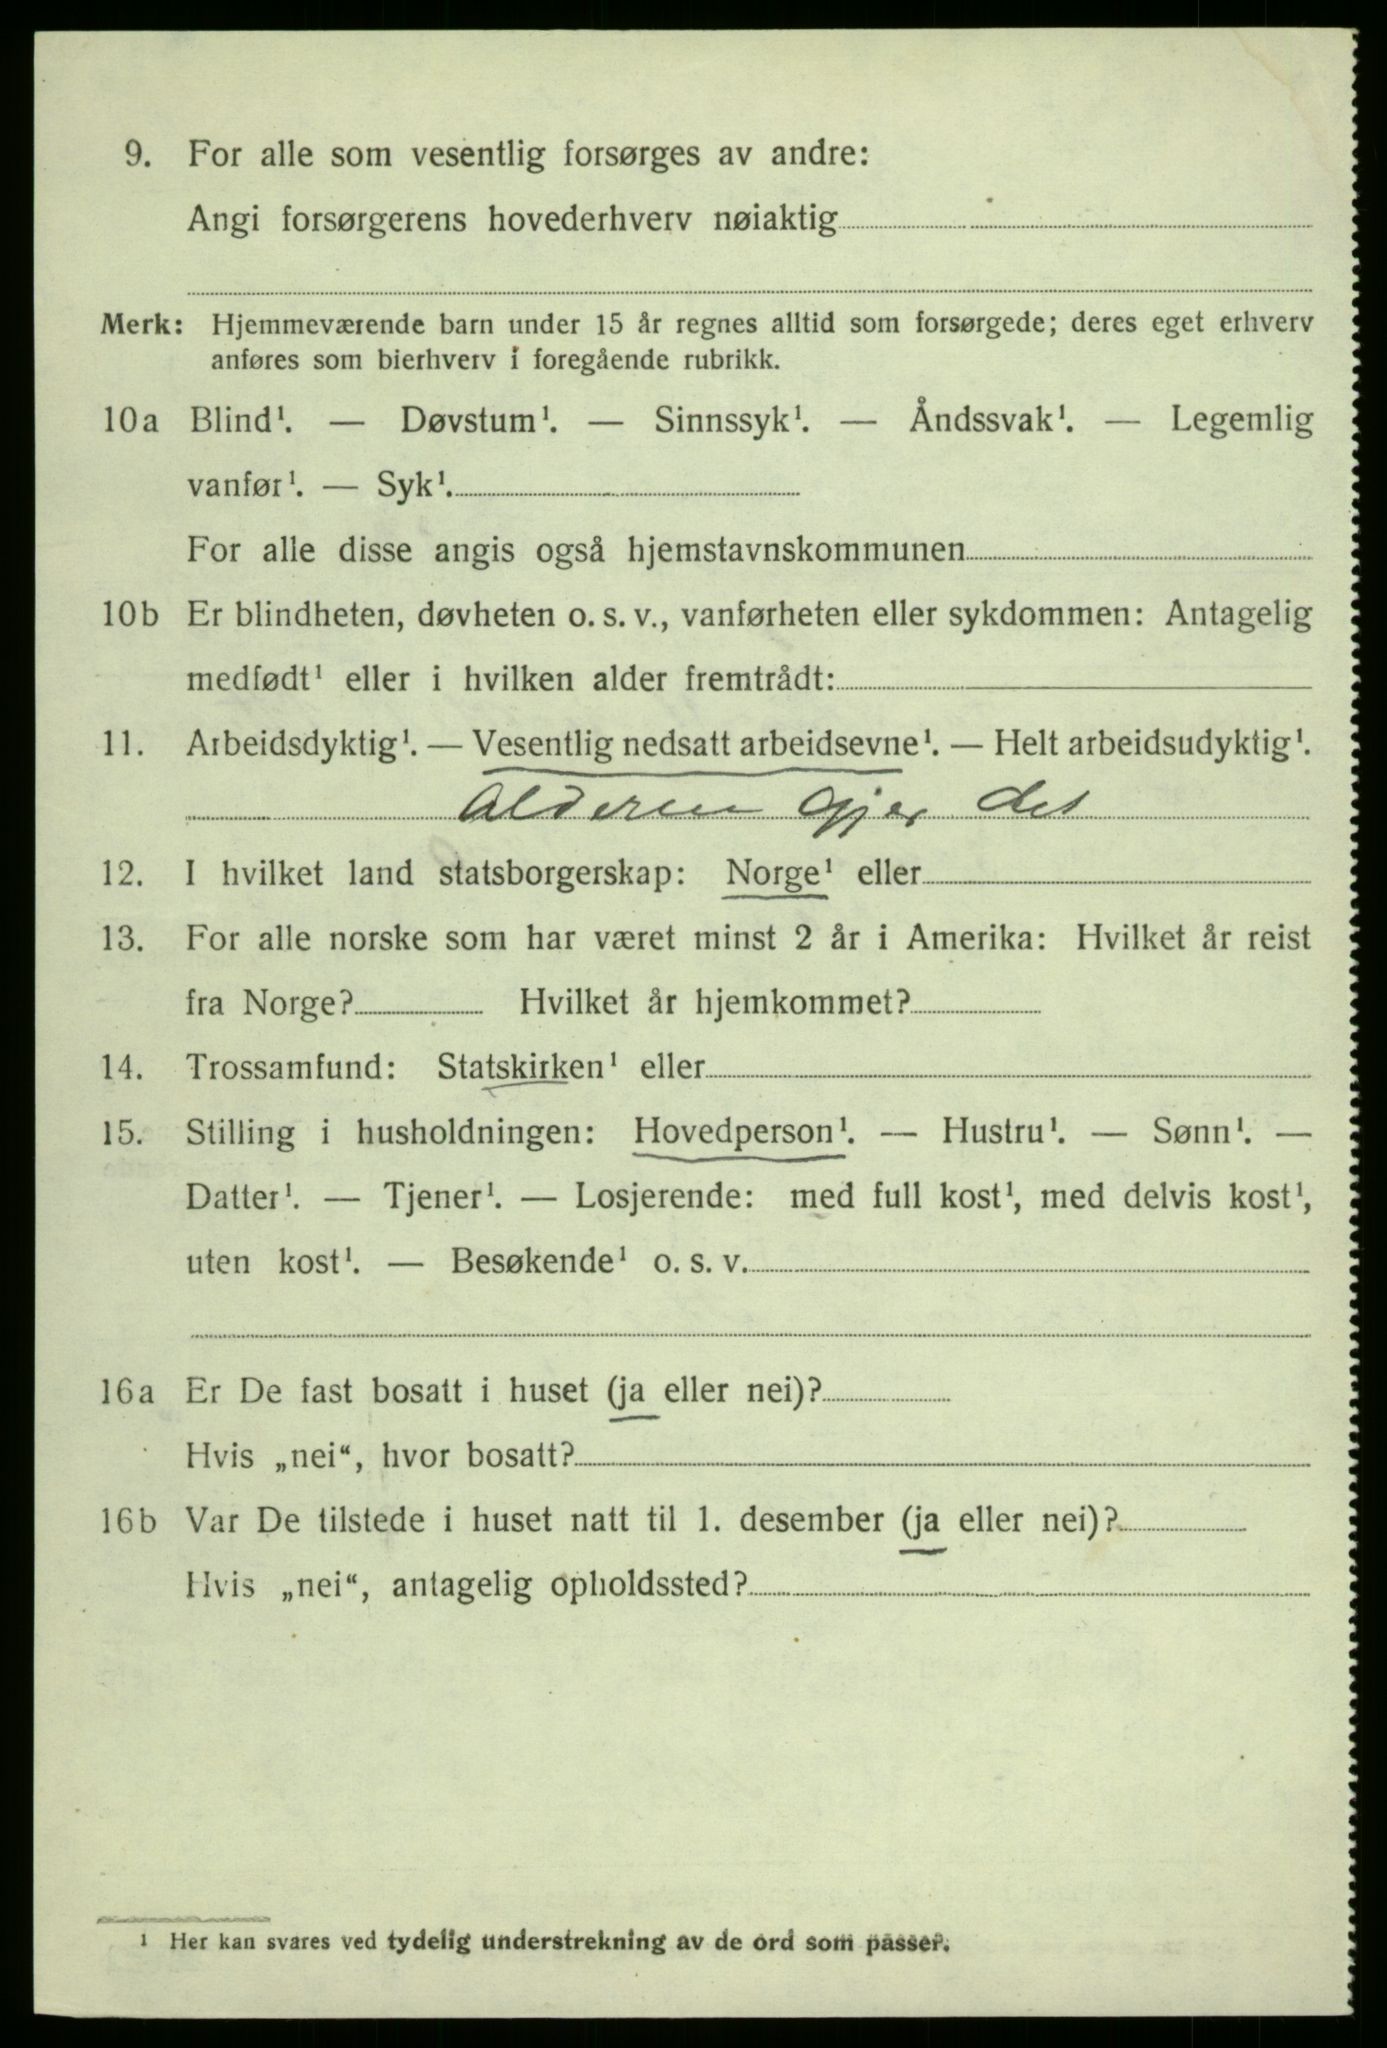 9. For alle som vesentlig forsørges av andre:
Angi forsørgerens hovederhverv nøiaktig
Merk: Hjemmeværende barn under 15 år regnes alltid som forsørgede; deres eget erhverv
anføres som bierhverv i foregående rubrikk.
10a Blind¹. — Døvstum¹. — Sinnssyk¹. — Åndssvak¹. — Legemlig
vanfør¹. — Syk¹.
For alle disse angis også hjemstavnskommunen
10b Er blindheten, døvheten o. s. v., vanførheten eller sykdommen: Antagelig
medfødt¹ eller i hvilken alder fremtrådt:
11. Arbeidsdyktig¹. — Vesentlig nedsatt arbeidsevne¹. — Helt arbeidsudyktig¹.
Alderen gjør det
12. I hvilket land statsborgerskap: Norge¹ eller
13. For alle norske som har været minst 2 år i Amerika: Hvilket år reist
fra Norge? Hvilket år hjemkommet?
14. Trossamfund: Statskirken¹ eller
15. Stilling i husholdningen: Hovedperson¹. — Hustru¹. — Sønn¹. —
Datter¹. — Tjener¹. — Losjerende: med full kost¹, med delvis kost¹,
uten kost¹. — Besøkende¹ o. s. v.
16a Er De fast bosatt i huset (ja eller nei)?
Hvis „nei“, hvor bosatt?
16b Var De tilstede i huset natt til 1. desember (ja eller nei)?
Hvis „nei“, antagelig opholdssted?
¹ Her kan svares ved tydelig understrekning av de ord som passer.